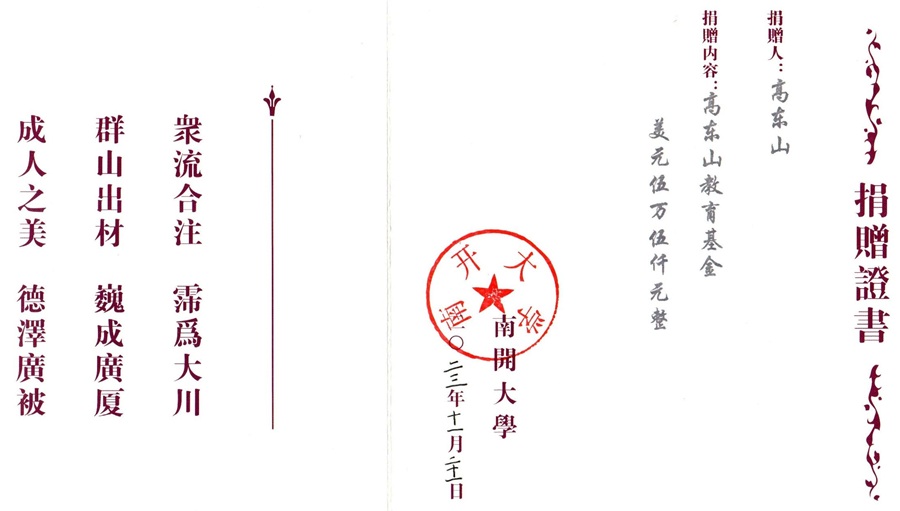 捐贈證書
捐贈人：高东山
捐贈内容：高东山教育基金
美元伍万伍仟元整
南開大學
南开大学
〇二三年十一月二十一日
衆流合注 霈爲大川
群山出材 巍成廣厦
成人之美 德澤廣被